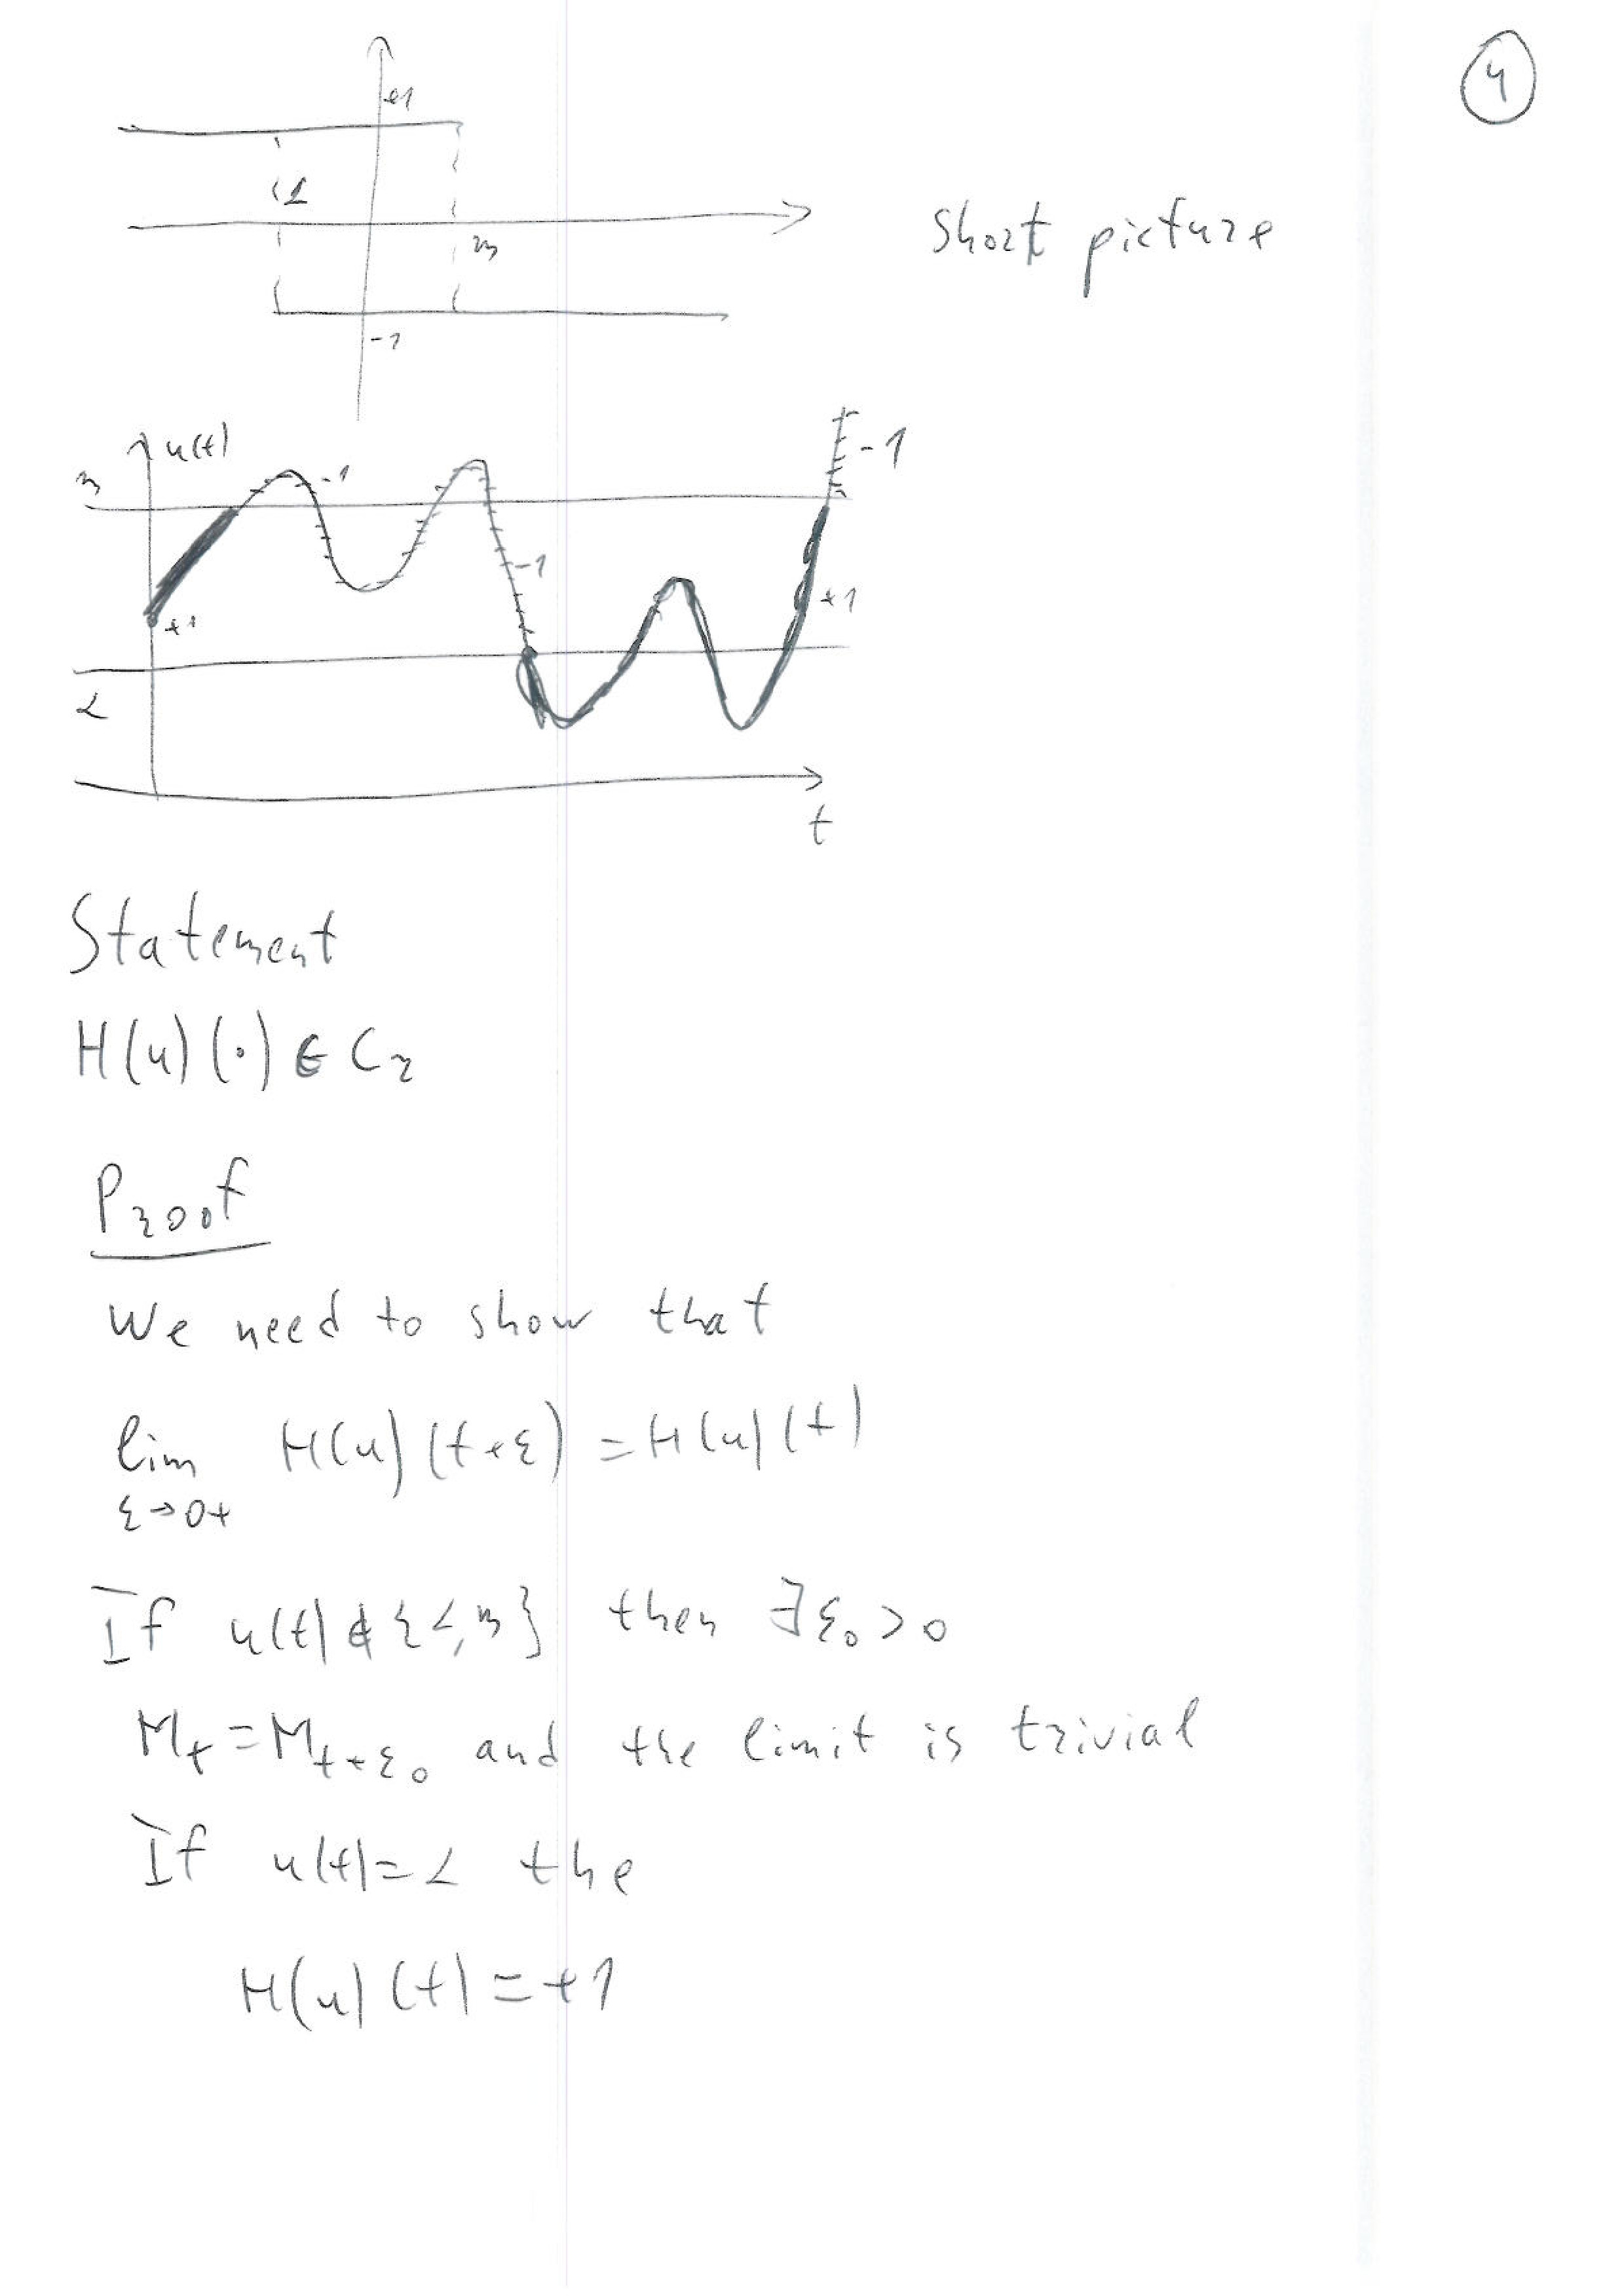 4
+1
α
β
-1
Short picture
u(t)
β
-1
-1
-1
+1
+1
α
t
Statement
H(u)(·) ∈ C_r
Proof
We need to show that
lim H(u)(t+ε) = H(u)(t)
ε→0+
If u(t) ∉ {α, β} then ∃ε₀ > 0
M_t = M_{t+ε₀} and the limit is trivial
If u(t) = α the
H(u)(t) = +1